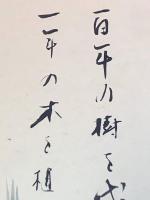 百年の樹を
一年の木を植